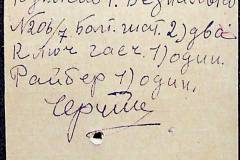 №206/7 болт. шат. 2) два
Ключ гаеч. 1) один.
Райбер 1) один.